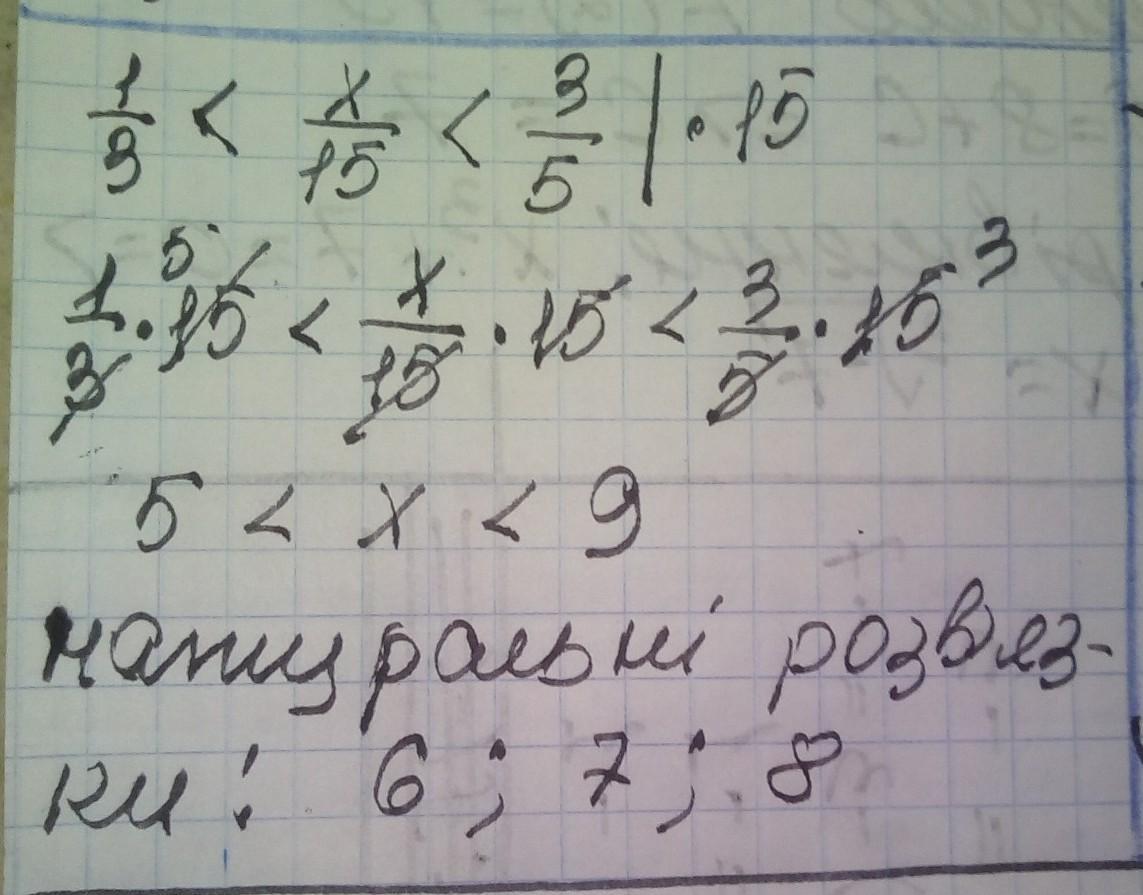 1/3 < x/15 < 3/5 | · 15
1/3 · 15 5 < x/15 · 15 < 3/5 · 15 3
5 < x < 9
натуральні розвяз-
ки: 6; 7; 8